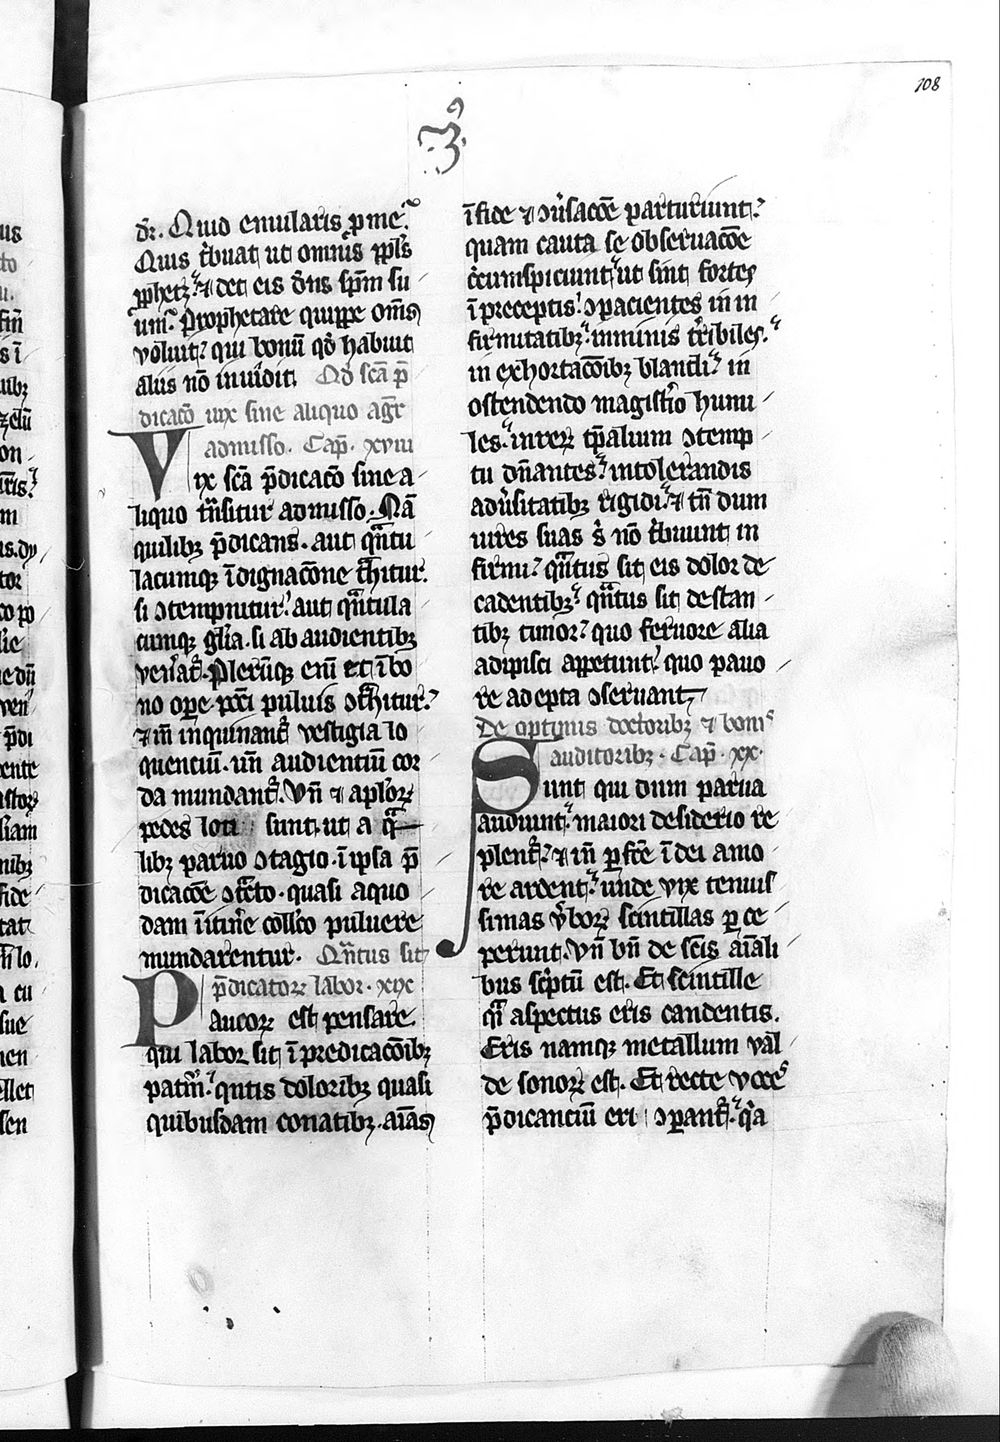 108
.3.
dr̄. Quid emularis ꝓ me?
Quis tͥbuat ut omnis ppl̄s
ꝓphetꝫ ⁊ det eis dn̄s sp̄m su
um. Prophetare quippe om̄s
voluit qui bonū qd̓ habuit
aliis nō inuidit. Qd̓ scā p̄
dicacō uix sine aliquo agr̄
admisso. Cap̄. xviii
Vix scā p̄dicacō sine a
liquo tn̄situr admisso. Nā
quilibꝫ p̄dicans. aut qͣntu
lacumqꝫ īdignacōne tͣhitur.
si ꝯtempnitur aut qͣntula
cumqꝫ gl̄ia. si ab audientibꝫ
ven̓at᷑. Plerūqꝫ enī et ī bo
no oꝑe. pcc̄i puluis ꝯtͣhitur.
⁊ iñ inquinant᷑ vestigia lo
quenciū. un̄ audienciū cor
da mundant᷑. Vn̄ ⁊ apl̓oꝝ
pedes loti sunt. ut a qͣ
libꝫ paruo ꝯtagio. ī ipsa p̄
dicacōe ꝯtͣcto. quasi a quo
dam ī itin̓e coll̓co puluere
mundarentur. Qn̄tus sit
p̄dicatoꝝ labor. xix
Paucoꝝ est pensare.
qui labor sit ī predicacōibꝫ
patrū. qn̄tis doloribꝫ quasi
quibusdam conatibꝫ. aīas
ī fide ⁊ ꝯu̓sacōe parturiunt.
quam cauta se obseruacōe
cͥcumspiciunt ut sint fortes
ī preceptis ꝯpacientes in in
firmitatibꝫ. in minis tr̓ibiles.
in exhortacōibꝫ blandi in
ostendendo magist̓io humi
les. in reꝝ tp̄alium ꝯtemp
tu dn̄antes in tolerandis
adu̓sitatibꝫ rigidi. ⁊ tn̄ dum
uires suas sͥ nō tͥbuunt in
firmi qͣntus sit eis dolor de
cadentibꝫ. qͣntus sit de stan
tibꝫ timor quo feruore alia
adipisci appetunt quo pauo
re adepta ꝯseruant
De optimis doctoribꝫ ⁊ bonis
auditoribꝫ. Cap̄. xx.
Sunt qui dum parua
audiunt. maiori desiderio re
plent᷑ ⁊ iñ ꝑfc̄e ī dei amo
re ardent. unde vix tenuis
simas v̓boꝝ scintillas ꝑce
perunt. Vn̄ bn̄ de sc̄is aīali
bus scͥptū est. Et scintille
qͣi aspectus eris candentis.
Eris namqꝫ metallum val
de sonoꝝ est. Et recte voces
p̄dicanciū eri ꝯꝑant᷑. qͥa